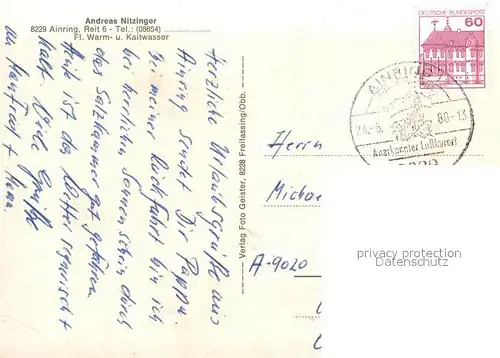 Andreas Nitzinger
8229 Ainring, Reit 6 - Tel.: (08654)
Fl. Warm- u. Kaltwasser
Herzliche Urlaubsgrüße aus
Ainring sendet Dir Pappa.
bei meiner Rückfahrt bin ich
bei herrlichen Sonnenschein durch
das Salzkammergut gefahren.
Heute ist das Wetter regnerisch +
kalt. Viele Grüße
an Manfred + Mama.
Verlag Foto Geister, 8228 Freilassing/Obb.
DEUTSCHE BUNDESPOST
60
AINRING
24.-6. 80-13
Anerkannter Luftkurort
8229
Herrn
A-9020
privacy protection
Datenschutz